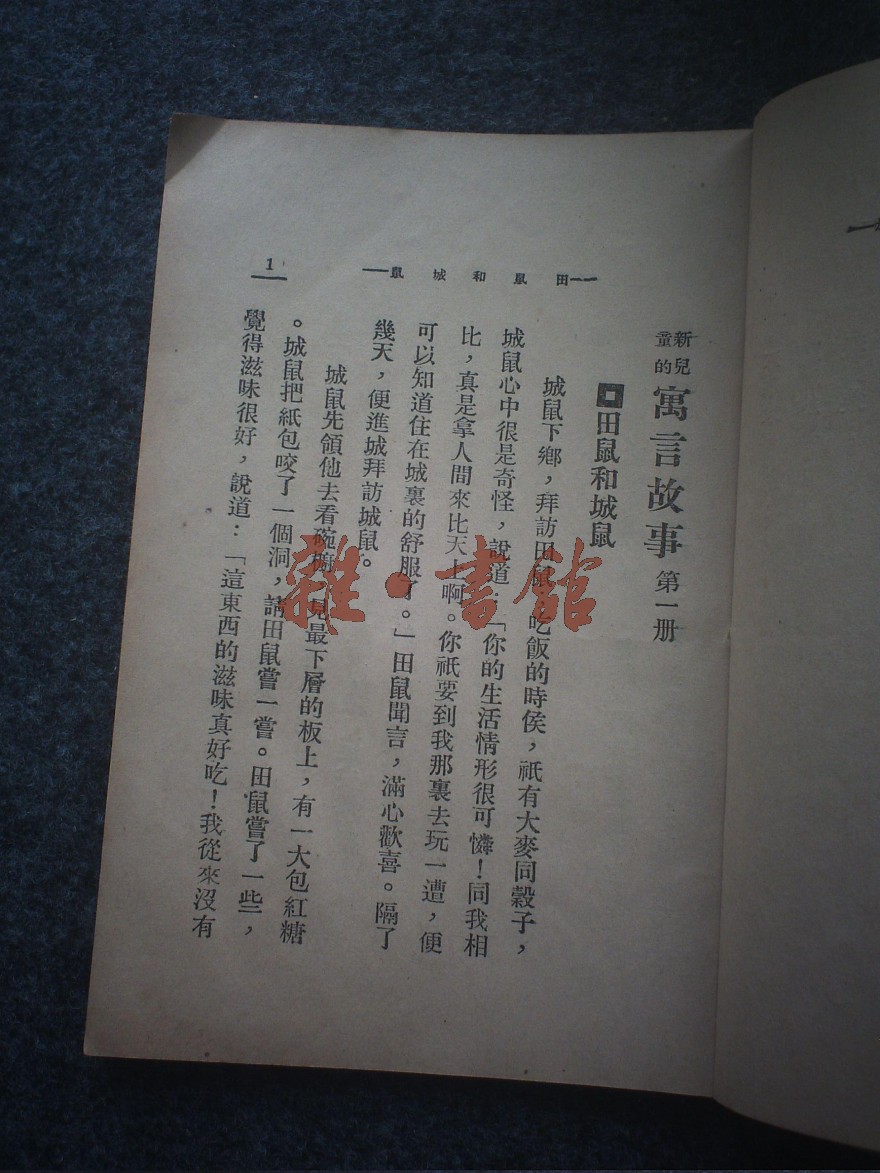 新兒童的 寓言故事 第一册
田鼠和城鼠
城鼠下鄉，拜訪田鼠 吃飯的時侯，祇有大麥同穀子，
城鼠心中很是奇怪，說道：「你的生活情形很可憐！同我相
比，真是拿人間來比天上啊。你祇要到我那裏去玩一遭，便
可以知道住在城裏的舒服了。」田鼠聞言，滿心歡喜。隔了
幾天，便進城拜訪城鼠。
城鼠先領他去看碗櫥 見最下層的板上，有一大包紅糖
。城鼠把紙包咬了一個洞，請田鼠嘗一嘗。田鼠嘗了一些，
覺得滋味很好，說道：「這東西的滋味真好吃！我從來沒有
田鼠和城鼠
1
雜·書館